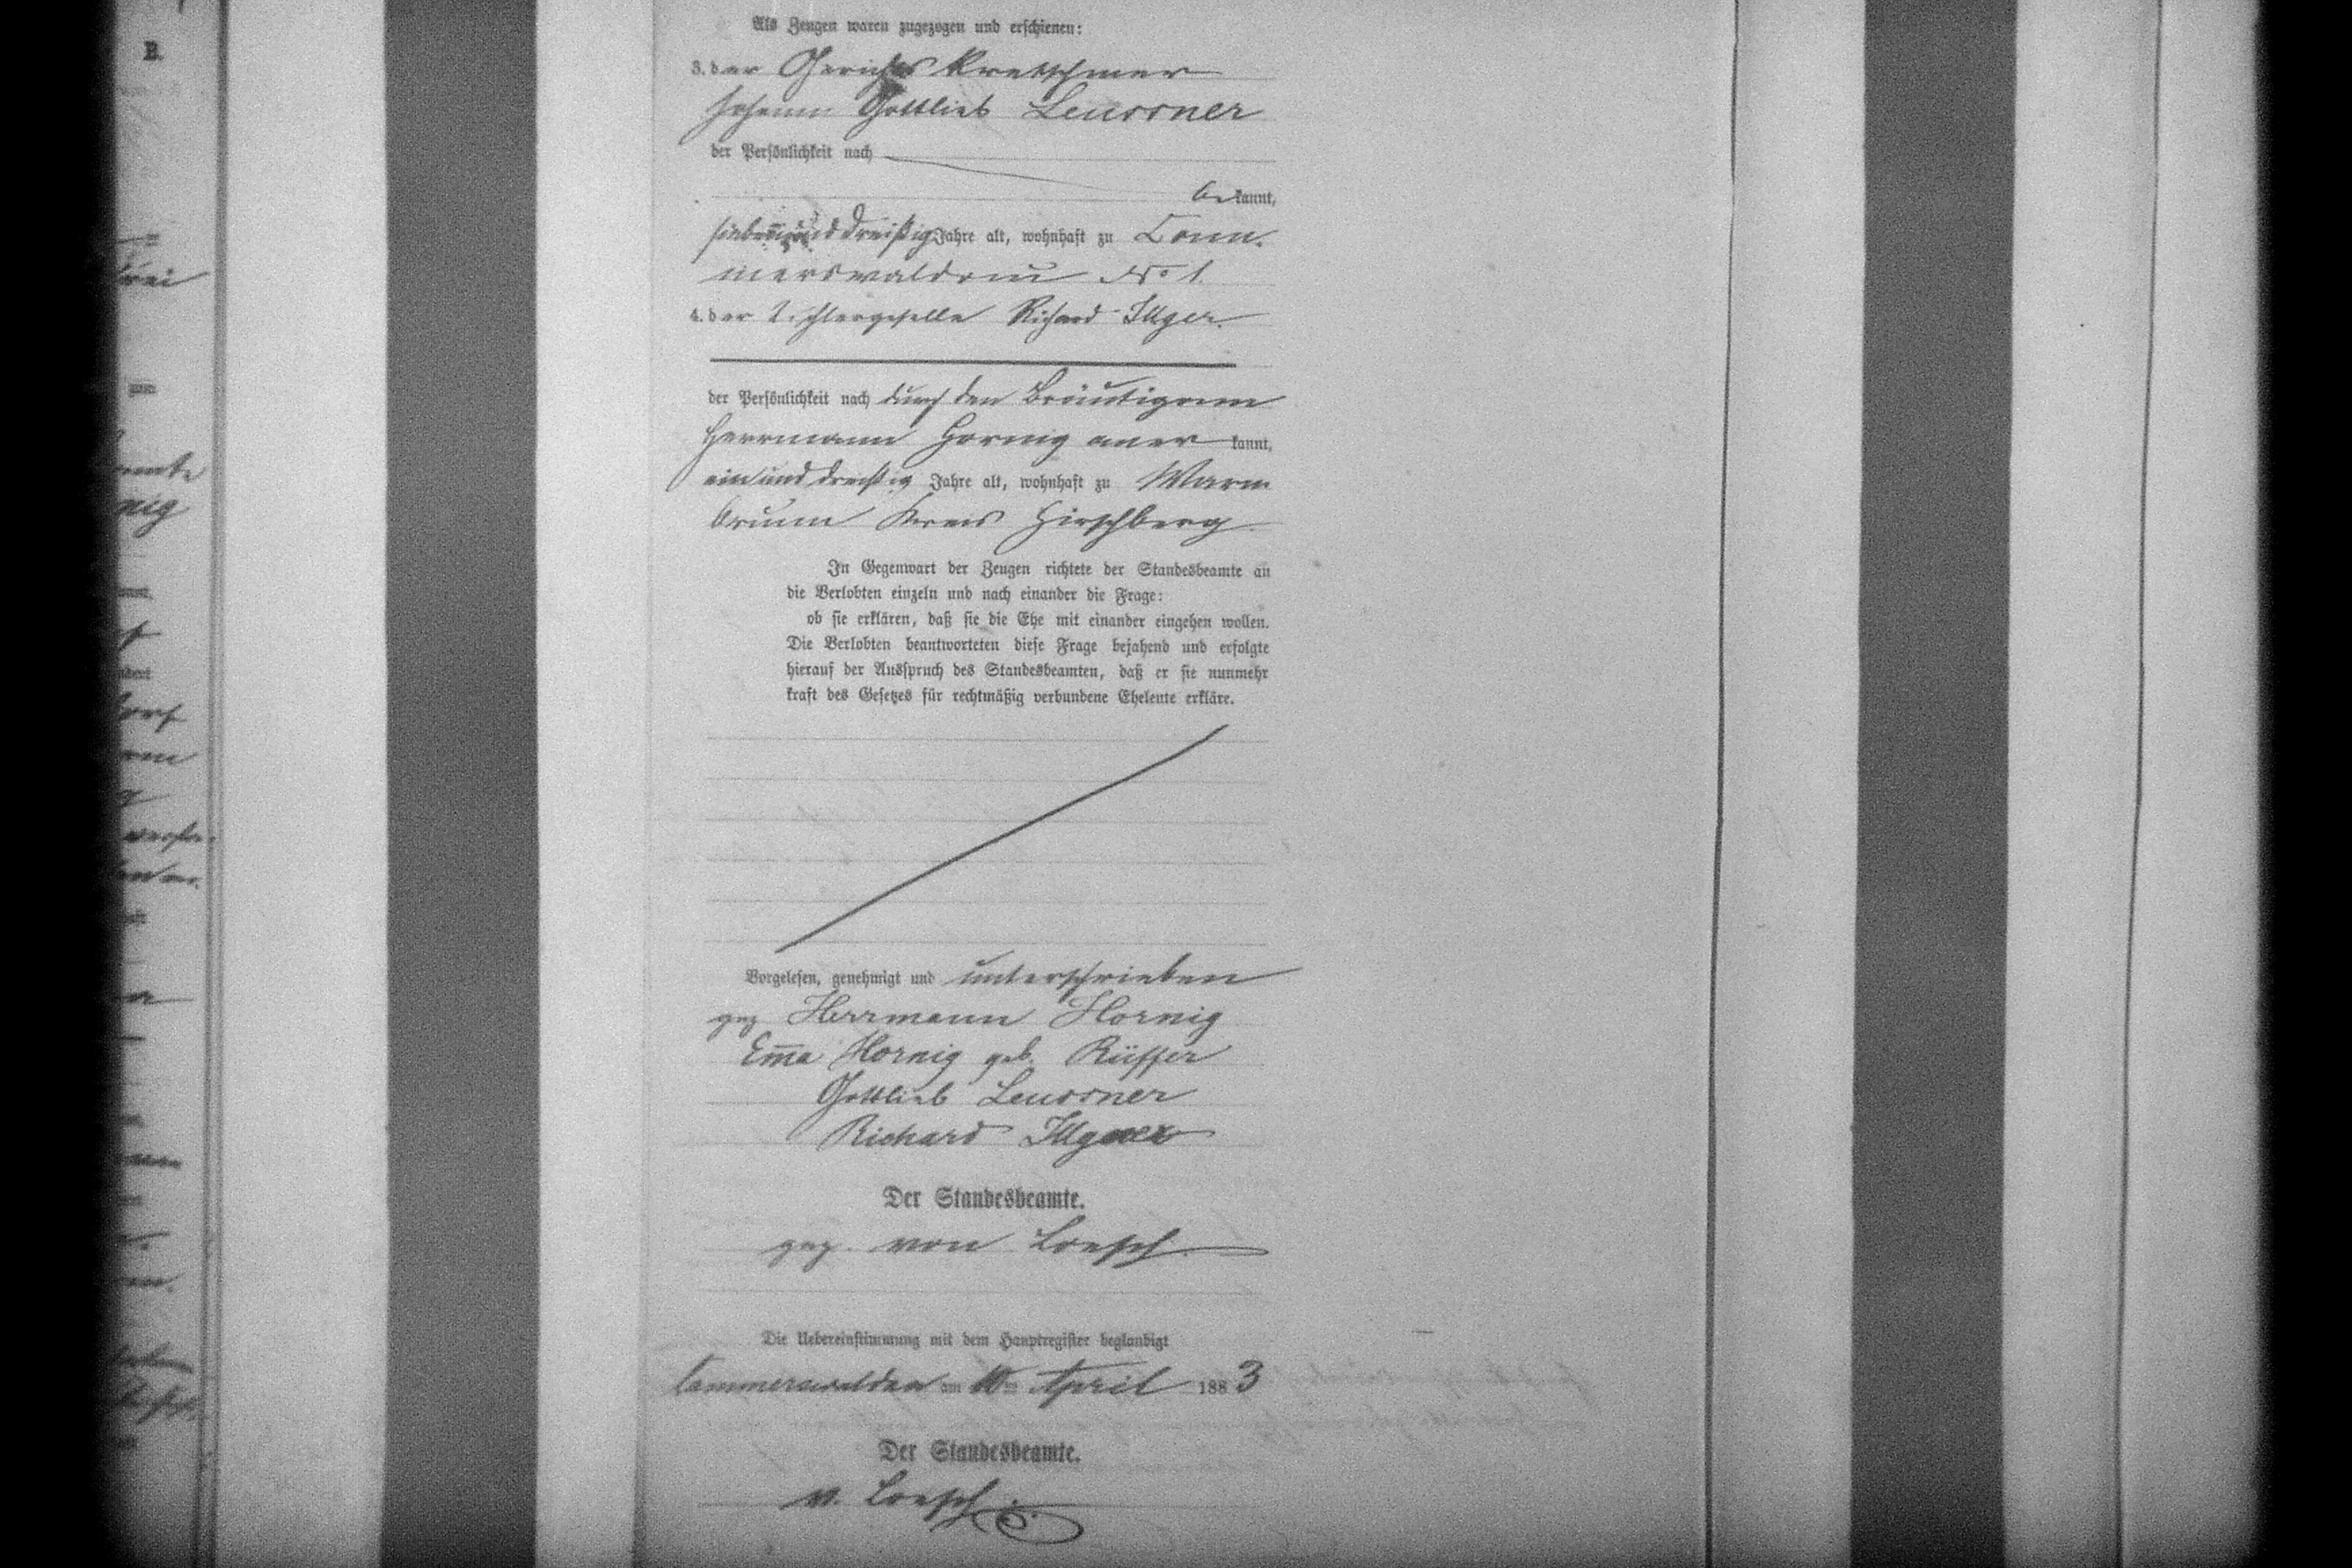 B.
Als Zeugen waren zugezogen und erschienen:
3. der Gerichts Kretschmer
Johann Gottlieb Leussner
der Persönlichkeit nach
bekannt,
siebenunddreißig Jahre alt, wohnhaft zu Com-
merswaldau No 1.
4. der Tischlergeselle Richard Illger.
der Persönlichkeit nach durch den Bräutigam
Herrmann Hornig anerkannt,
einunddreißig Jahre alt, wohnhaft zu Warm
brunn Kreis Hirschberg
In Gegenwart der Zeugen richtete der Standesbeamte an
die Verlobten einzeln und nach einander die Frage:
ob sie erklären, daß sie die Ehe mit einander eingehen wollen.
Die Verlobten beantworteten diese Frage bejahend und erfolgte
hierauf der Ausspruch des Standesbeamten, daß er sie nunmehr
kraft des Gesetzes für rechtmäßig verbundene Eheleute erkläre.
Vorgelesen, genehmigt und unterschrieben
gez Herrmann Hornig
Emma Hornig geb. Rüffer
Gottlieb Leussner
Richard
Der Standesbeamte.
gez. von Loesch.
Die Uebereinstimmung mit dem Hauptregister beglaubigt
am 10ten April 1883
Der Standesbeamte.
v. Loesch.